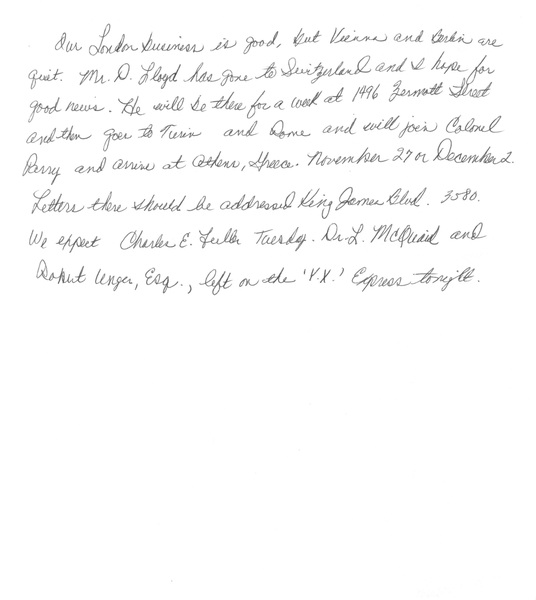 Our London business is good, but Vienna and Berlin are
quiet. Mr. D. Lloyd has gone to Switzerland and I hope for
good news. He will be there for a week at 1496 Zermott Street
and then goes to Turin and Rome and will join Colonel
Parry and arrive at Athens, Greece. November 27 or December 2.
Letters there should be addressed King James Blvd. 3580.
We expect Charles E. Fuller Tuesday. Dr. L. McQuaid and
Robert Unger, Esq., left on the 'Y.X.' Express tonight.